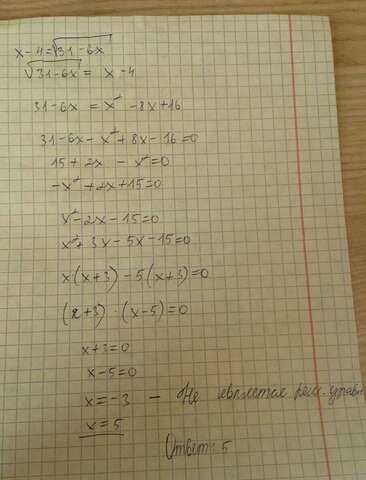 x-4=√31-6x
√31-6x = x-4
31-6x = x² -8x+16
31-6x-x²+8x-16=0
15+2x -x²=0
-x²+2x+15=0
x²-2x-15=0
x²+3x-5x-15=0
x(x+3)-5(x+3)=0
(x+3)·(x-5)=0
x+3=0
x-5=0
x=-3 - Не является реш. уравн
x=5
Ответ: 5